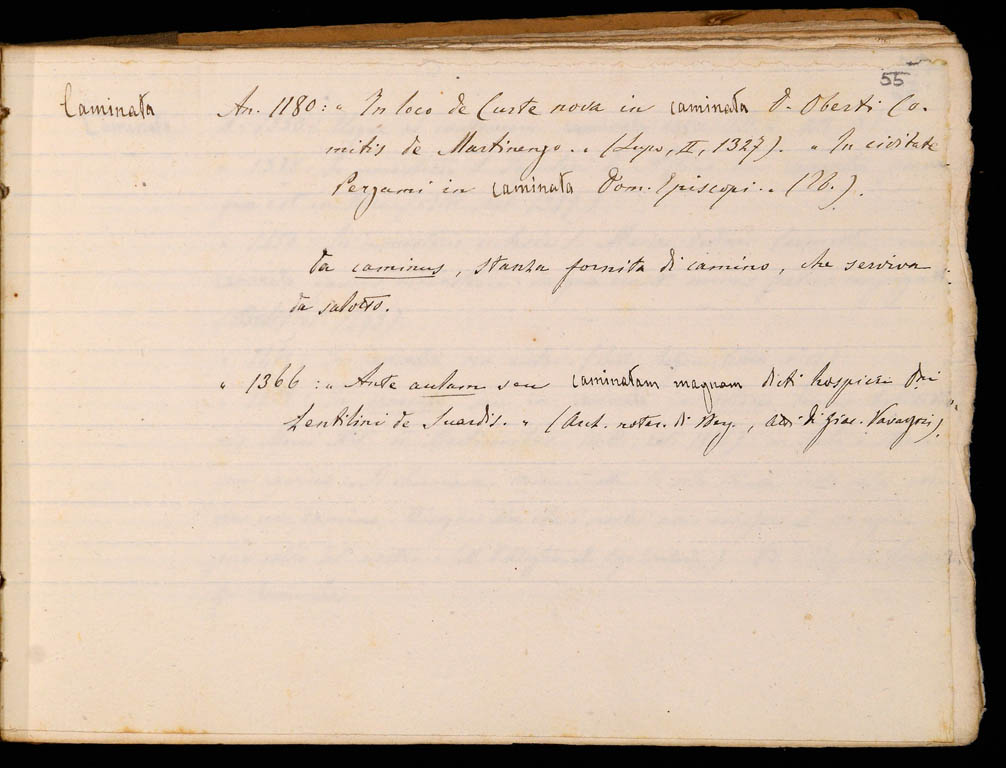 55
Caminata An. 1180: „ In loco de Curte nova in caminata D. Oberti Co-
mitis de Martinengo. „ (Lupo, II, 1327). „ In civitate
Pergami in caminata Dom. Episcopi. „ (Ib.).
da caminus, stanza fornita di camino, che serviva
da salotto.
„ 1366: „ Ante aulam seu caminatam magnam dicti hospicii Dni
Zentilini de Suardis. „ (Arch. notar. di Berg., Atti di Giac. )